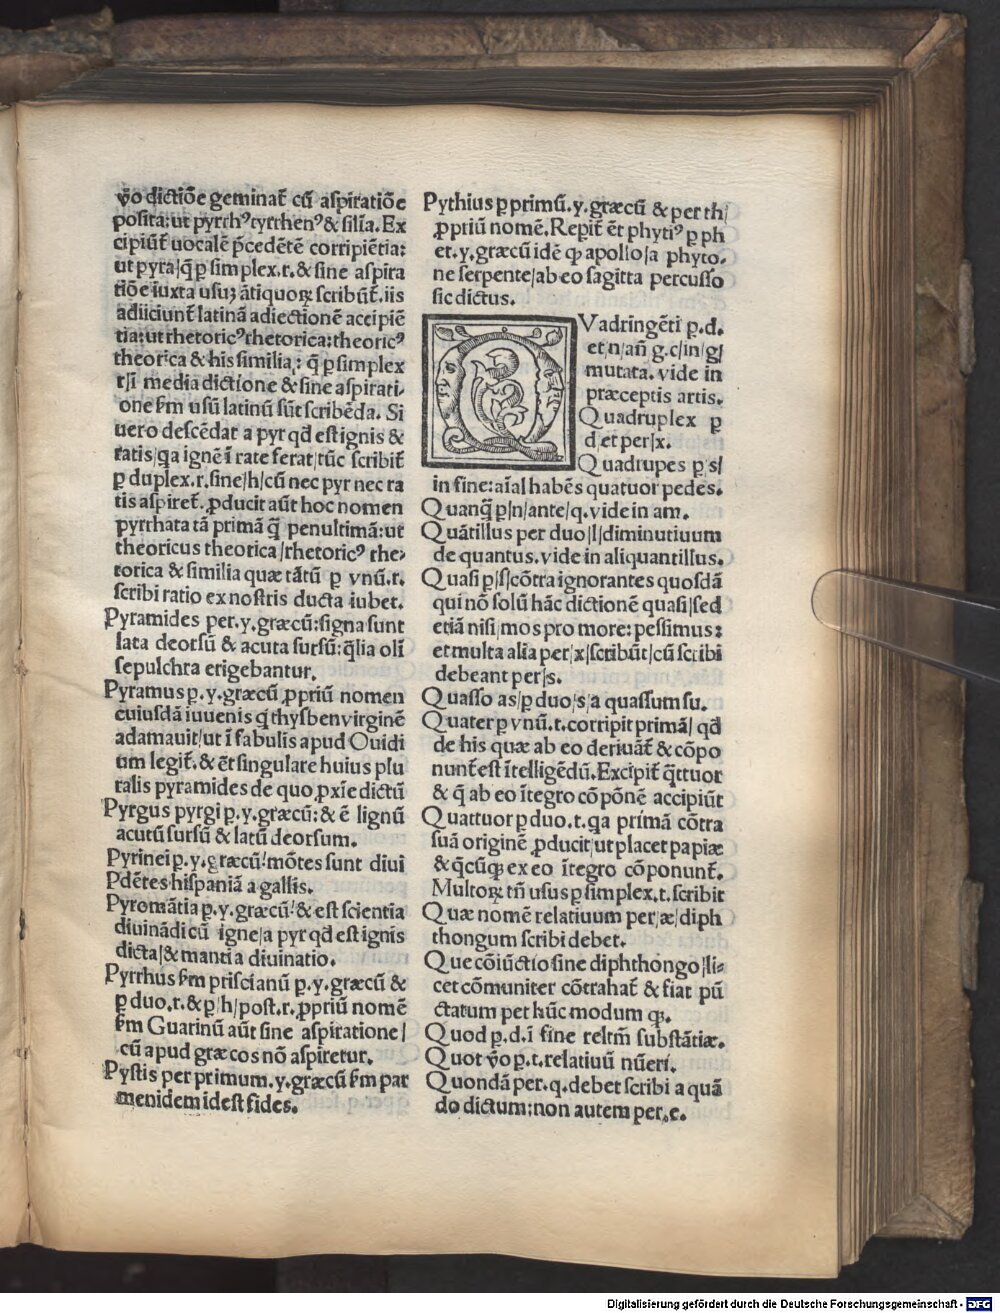 v̄o dictiōe geminat̄ cū aſpiratiōe
poſita: ut pyrrhꝰ tyrrhenꝰ & ſilia. Ex
cipiūt̄ uocalē p̄cedētē corripiētia:
ut pyra/q̄ ꝑ ſimplex .r. & ſine aſpira
tiōe iuxta uſuꝫ ātiquoꝝ ſcribūt̄. iis
adiiciunt̄ latinā adiectionē accipiē
tia: ut rhetoricꝰ rhetorica: theoricꝰ
theorica & his ſimilia: q̄ ꝑ ſimplex
r/ī media dictione & ſine aſpirati-
one ẜm uſū latinū ſūt ſcribēda. Si
uero deſcēdat a pyr qd̄ eſt ignis &
ratis/qa ignē ī rate ferat/tūc ſcribit̄
ꝑ duplex .r. ſine/h/cū nec pyr nec ra
tis aſpiret̄. ꝓducit aūt hoc nomen
pyrrhata tā primā q̄ penultimā: ut
theoricus theorica/rhetoricꝰ rhe-
torica & ſimilia quæ tātū ꝑ vnū .r.
ſcribi ratio ex noſtris ducta iubet.
Pyramides per .y. græcū: ſigna ſunt
lata deorſū & acuta ſurſū: q̄lia olī
ſepulchra erigebantur.
Pyramus ꝑ .y. græcū ꝓpriū nomen
cuiuſdā iuuenis q̄ thyſben virginē
adamauit/ut ī fabulis apud Ouidi
um legit̄. & ēt ſingulare huius plu
ralis pyramides de quo ꝓxie dictū
Pyrgus pyrgi ꝑ .y. græcū: & ē lignū
acutū ſurſū & latū deorſum.
Pyrinei ꝑ .y. græcū: mōtes ſunt diui
dētes hiſpaniā a gallis.
Pyromātia ꝑ .y. græcū: & eſt ſcientia
diuinādi cū igne/a pyr qd̄ eſt ignis
dicta/& mantia diuinatio.
Pyrrhus ẜm priſcianū ꝑ .y. græcū &
ꝑ duo .r. & ꝑ/h/poſt .r. ꝓpriū nomē
ẜm Guarinū aūt ſine aſpiratione/
cū apud græcos nō aſpiretur.
Pyſtis per primum .y. græcū ẜm par
menidem id eſt fides.
Pythius ꝑ primū .y. græcū & per th/
ꝓpriū nomē. Reꝑit̄ ēt phytiꝰ ꝑ ph
et .y. græcū idē ꝙ apollo/a phyto-
ne ſerpente/ab eo ſagitta percuſſo
ſic dictus.
QVadringēti ꝑ .d.
et/n/añ g.c/in/g/
mutata. vide in
præceptis artis.
Quadruplex ꝑ
d et per/x.
Quadrupes ꝑ/s/
in fine: aīal habēs quatuor pedes.
Quanq̄ ꝑ/n/ante/q. vide in am.
Quātillus per duo/l/diminutiuum
de quantus. vide in aliquantillus.
Quaſi ꝑ/ſ/cōtra ignorantes quoſdā
qui nō ſolū hāc dictionē quaſi/ſed
etiā niſi/mos pro more: peſſimus:
et multa alia per/x/ſcribūt/cū ſcribi
debeant per/s.
Quaſſo as/ꝑ duo/s/a quaſſum ſu.
Quater ꝑ vnū .t. corripit primā/qd̄
de his quæ ab eo deriuāt̄ & cōpo
nunt̄ eſt ītelligēdū. Excipit̄ q̄ttuor
& q̄ ab eo ītegro cōpōnē accipiūt
Quattuor ꝑ duo .t. qa primā cōtra
ſuā originē ꝓducit/ut placet papiæ
& q̄cūqꝫ ex eo ītegro cōponunt̄.
Multoꝝ tñ uſus ꝑ ſimplex .t. ſcribit
Quæ nomē relatiuum per/æ/diph
thongum ſcribi debet.
Que cōiūctio ſine diphthongo/li-
cet cōmuniter cōtrahat̄ & fiat pū
ctatum per hūc modum qꝫ.
Quod ꝑ .d. ī fine relr̄m ſubſtātiæ.
Quot v̄o ꝑ .t. relatiuū nūeri.
Quondā per .q. debet ſcribi a quā
do dictum: non autem per .c.
Digitalisierung gefördert durch die Deutsche Forschungsgemeinschaft - DFG